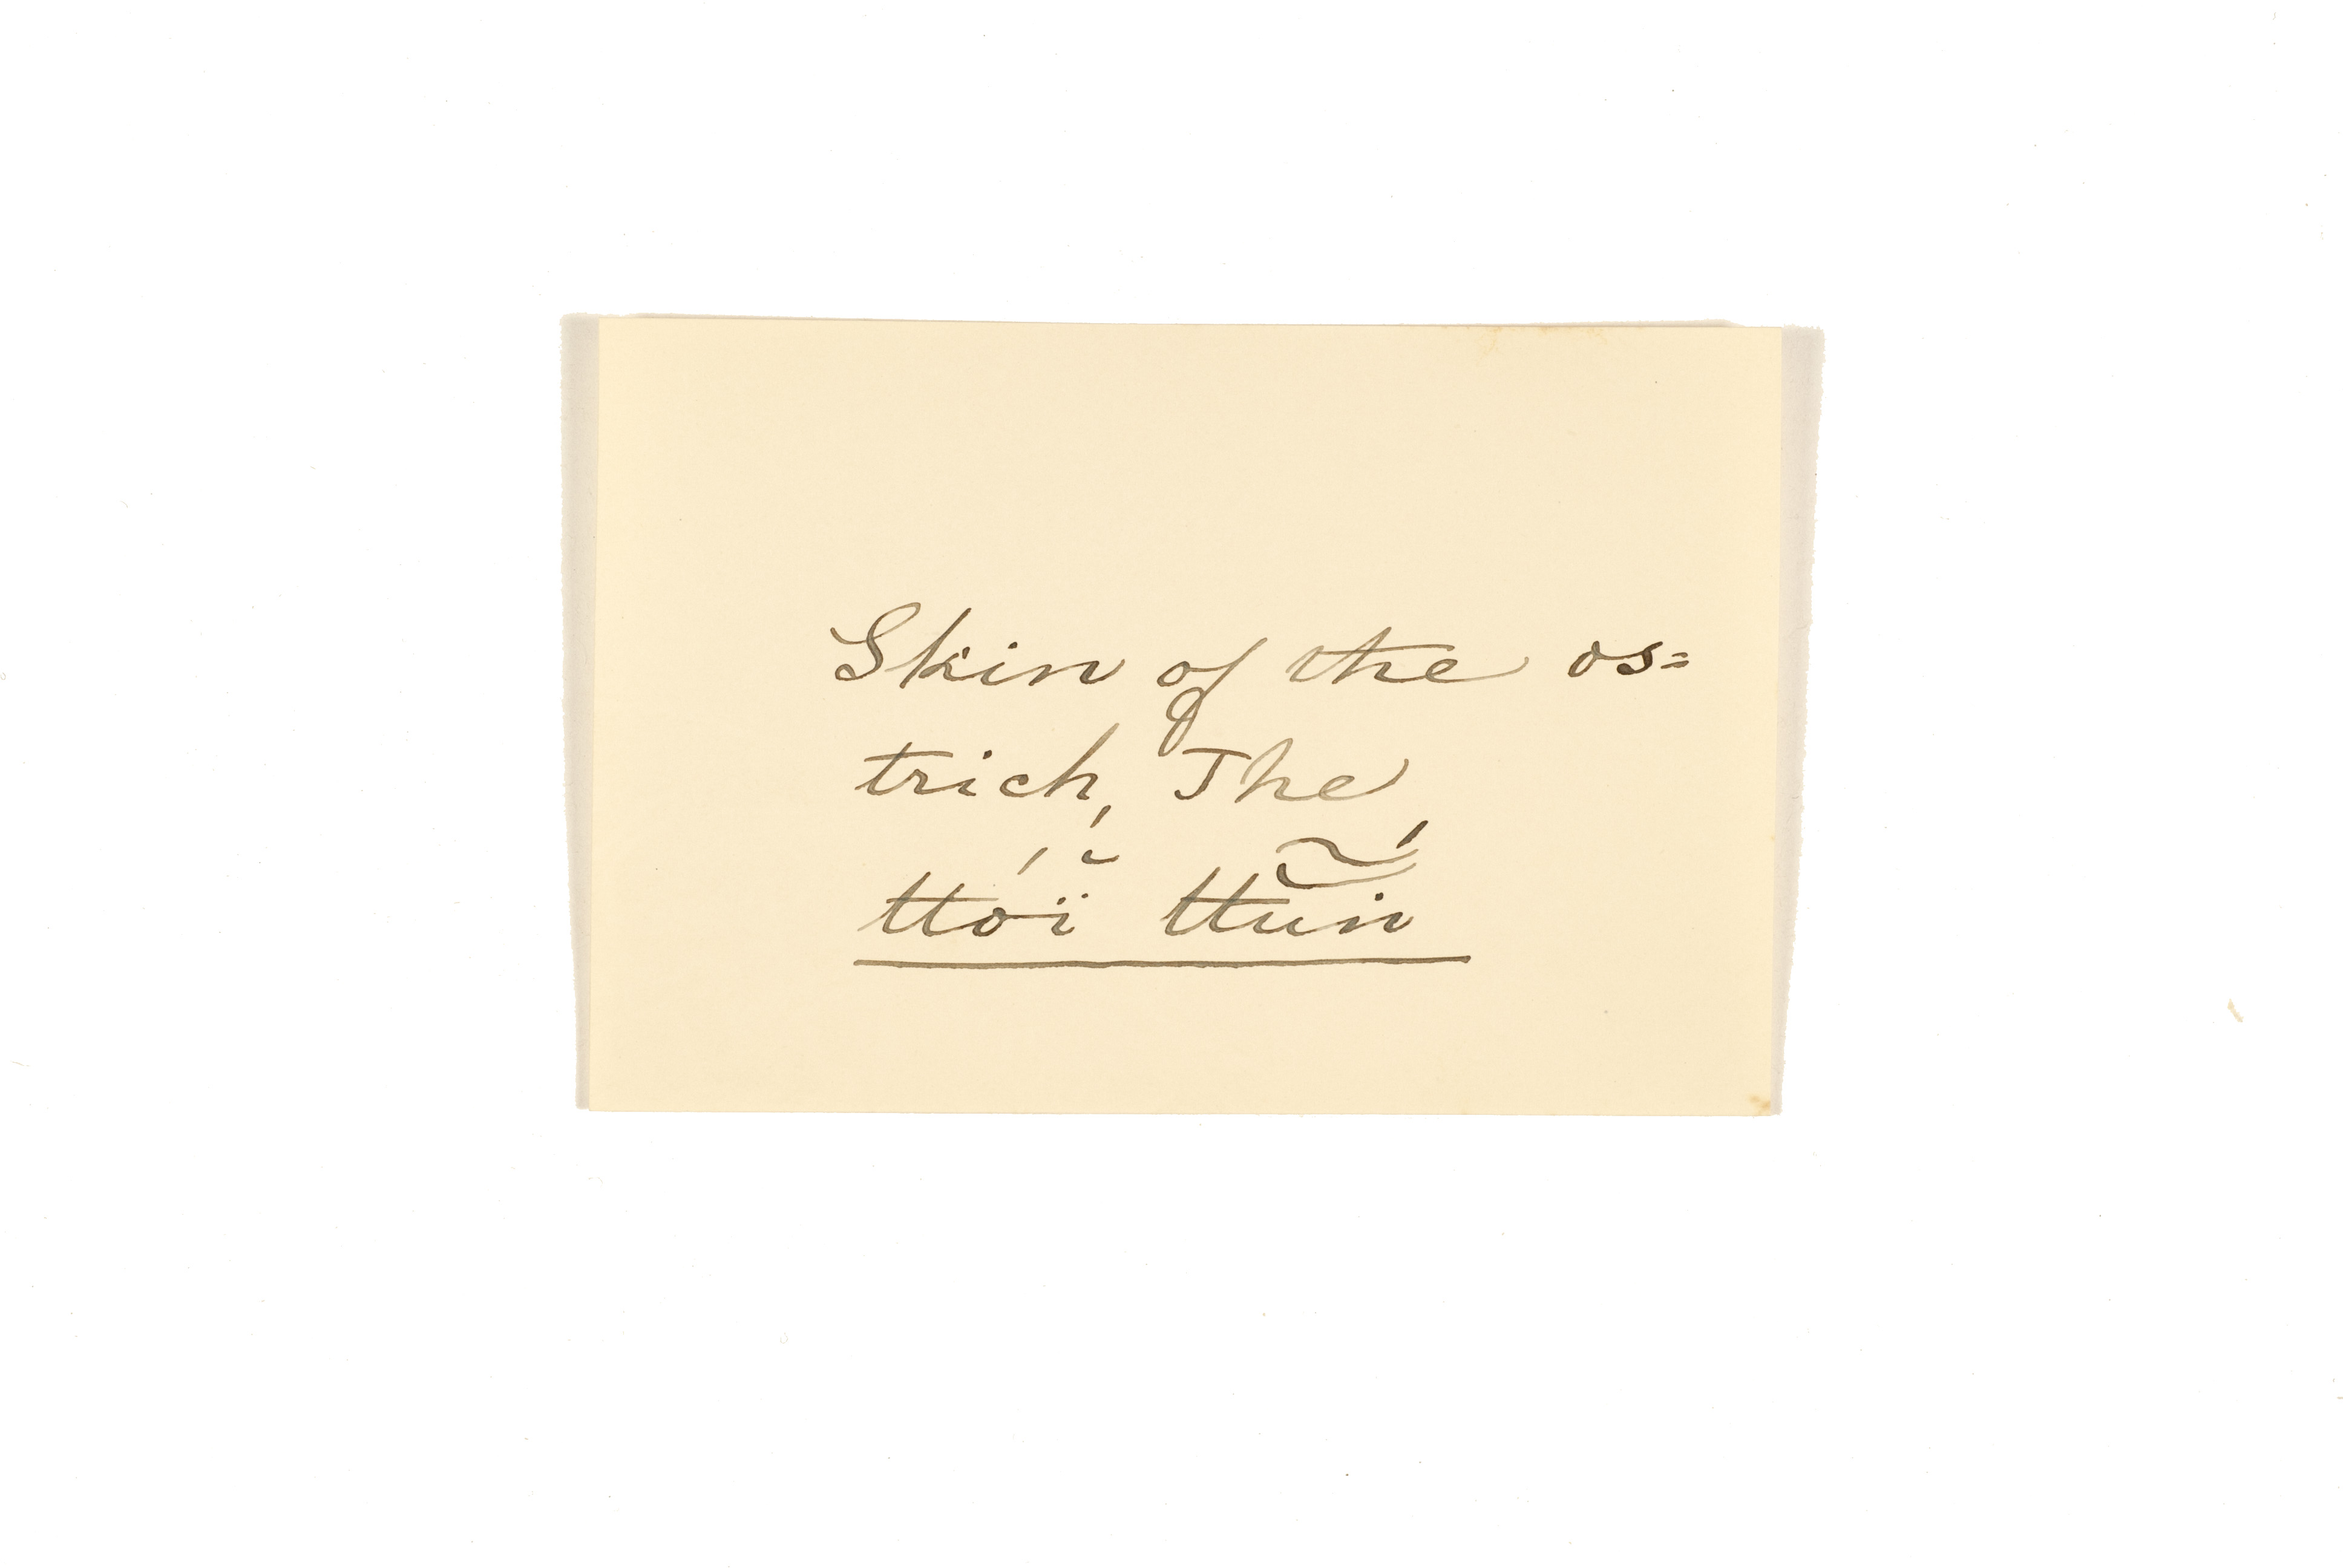 Skin of the os=
trich, The
ttóï ttũín